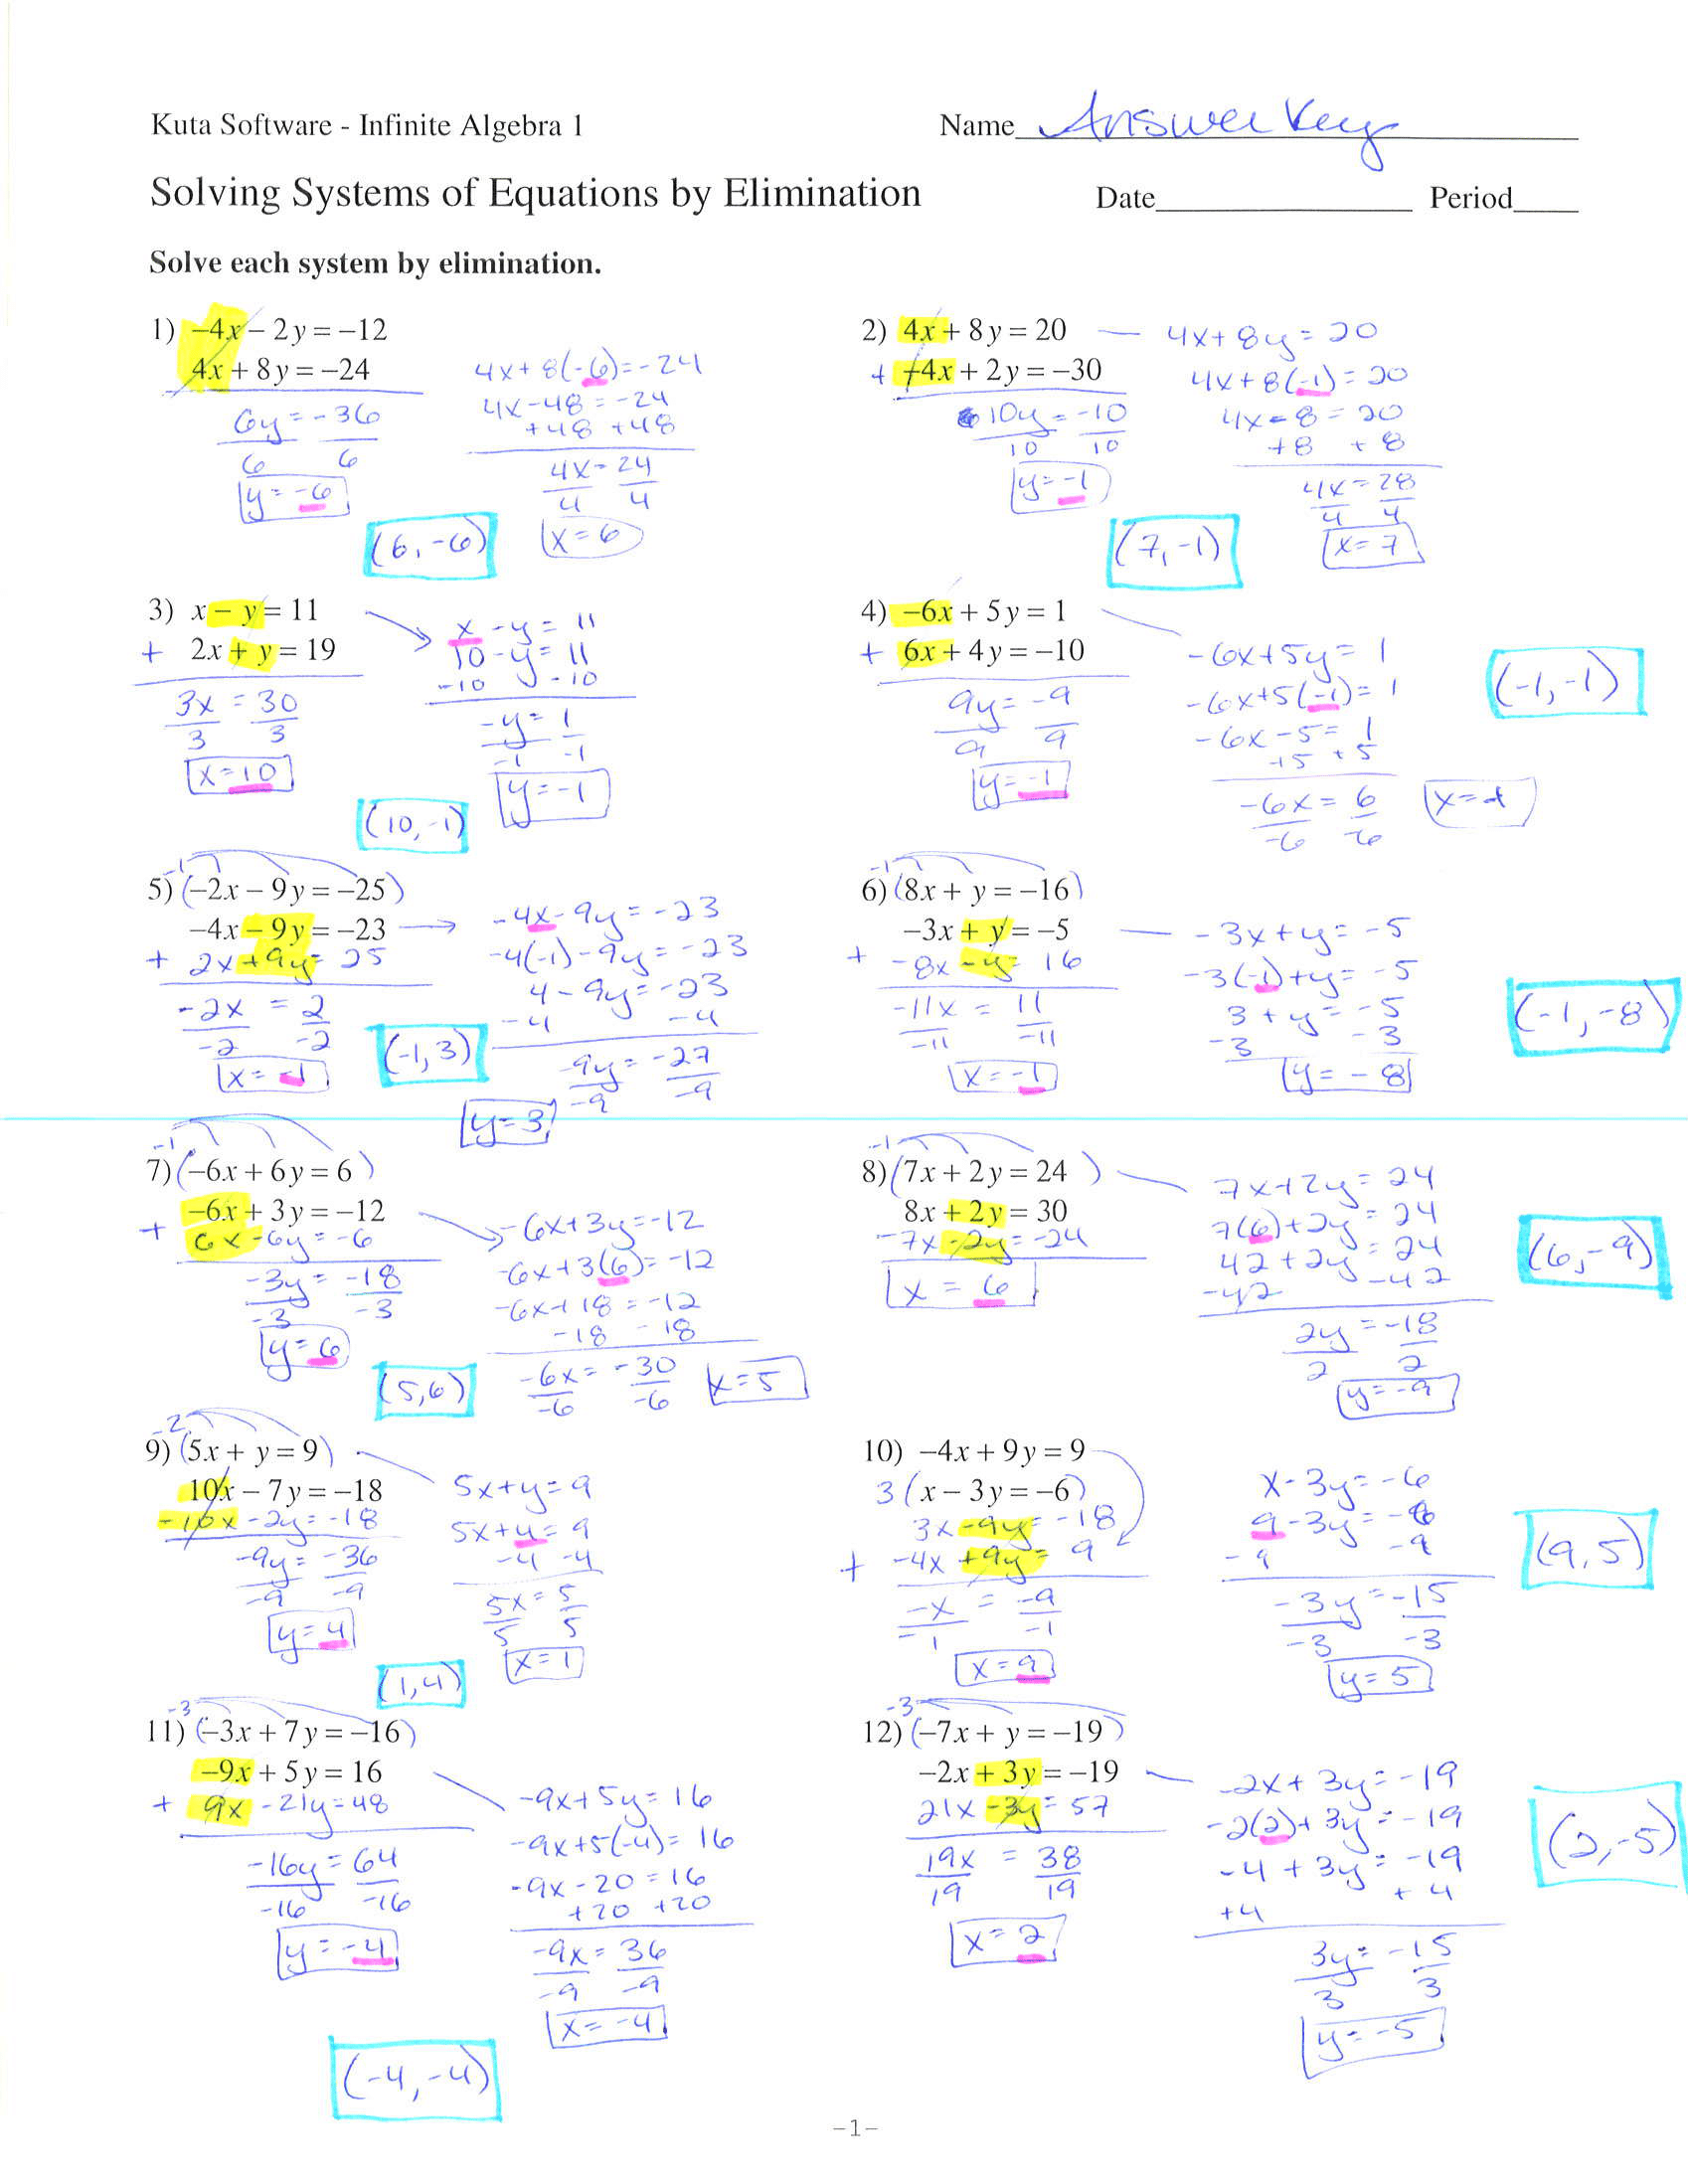 Kuta Software - Infinite Algebra 1
Name Answer Key
Solving Systems of Equations by Elimination
Date Period
Solve each system by elimination.
1) −4x − 2y = −12
4x + 8y = −24
6y = -36
6 6
y = -6
4x + 8(-6) = -24
4x - 48 = -24
+48 +48
4x = 24
4 4
x = 6
(6, -6)
2) 4x + 8y = 20
+ −4x + 2y = −30
10y = -10
10 10
y = -1
4x + 8y = 20
4x + 8(-1) = 20
4x - 8 = 20
+8 +8
4x = 28
4 4
x = 7
(7, -1)
3) x − y = 11
+ 2x + y = 19
3x = 30
3 3
x = 10
x - y = 11
10 - y = 11
-10 -10
-y = 1
-1 -1
y = -1
(10, -1)
4) −6x + 5y = 1
+ 6x + 4y = −10
9y = -9
9 9
y = -1
-6x + 5y = 1
-6x + 5(-1) = 1
-6x - 5 = 1
+5 +5
-6x = 6
-6 -6
x = -1
(-1, -1)
-1
5) (−2x − 9y = −25)
−4x − 9y = −23
+ 2x + 9y = 25
-2x = 2
-2 -2
x = -1
-4x - 9y = -23
-4(-1) - 9y = -23
4 - 9y = -23
-4 -4
-9y = -27
-9 -9
y = 3
(-1, 3)
-1
6) (8x + y = −16)
−3x + y = −5
+ -8x - y = 16
-11x = 11
-11 -11
x = -1
-3x + y = -5
-3(-1) + y = -5
3 + y = -5
-3 -3
y = -8
(-1, -8)
-1
7) (−6x + 6y = 6)
−6x + 3y = −12
+ 6x - 6y = -6
-3y = -18
-3 -3
y = 6
-6x + 3y = -12
-6x + 3(6) = -12
-6x + 18 = -12
-18 -18
-6x = -30
-6 -6
x = 5
(5, 6)
-1
8) (7x + 2y = 24)
8x + 2y = 30
-7x - 2y = -24
x = 6
7x + 2y = 24
7(6) + 2y = 24
42 + 2y = 24
-42 -42
2y = -18
2 2
y = -9
(6, -9)
-2
9) (5x + y = 9)
10x − 7y = −18
-10x - 2y = -18
-9y = -36
-9 -9
y = 4
5x + y = 9
5x + 4 = 9
-4 -4
5x = 5
5 5
x = 1
(1, 4)
10) −4x + 9y = 9
3 (x − 3y = −6)
3x - 9y = -18
+ -4x + 9y = 9
-x = -9
-1 -1
x = 9
x - 3y = -6
9 - 3y = -6
-9 -9
-3y = -15
-3 -3
y = 5
(9, 5)
-3
11) (−3x + 7y = −16)
−9x + 5y = 16
+ 9x - 21y = 48
-16y = 64
-16 -16
y = -4
-9x + 5y = 16
-9x + 5(-4) = 16
-9x - 20 = 16
+20 +20
-9x = 36
-9 -9
x = -4
(-4, -4)
-3
12) (−7x + y = −19)
−2x + 3y = −19
21x - 3y = 57
19x = 38
19 19
x = 2
-2x + 3y = -19
-2(2) + 3y = -19
-4 + 3y = -19
+4 +4
3y = -15
3 3
y = -5
(2, -5)
-1-